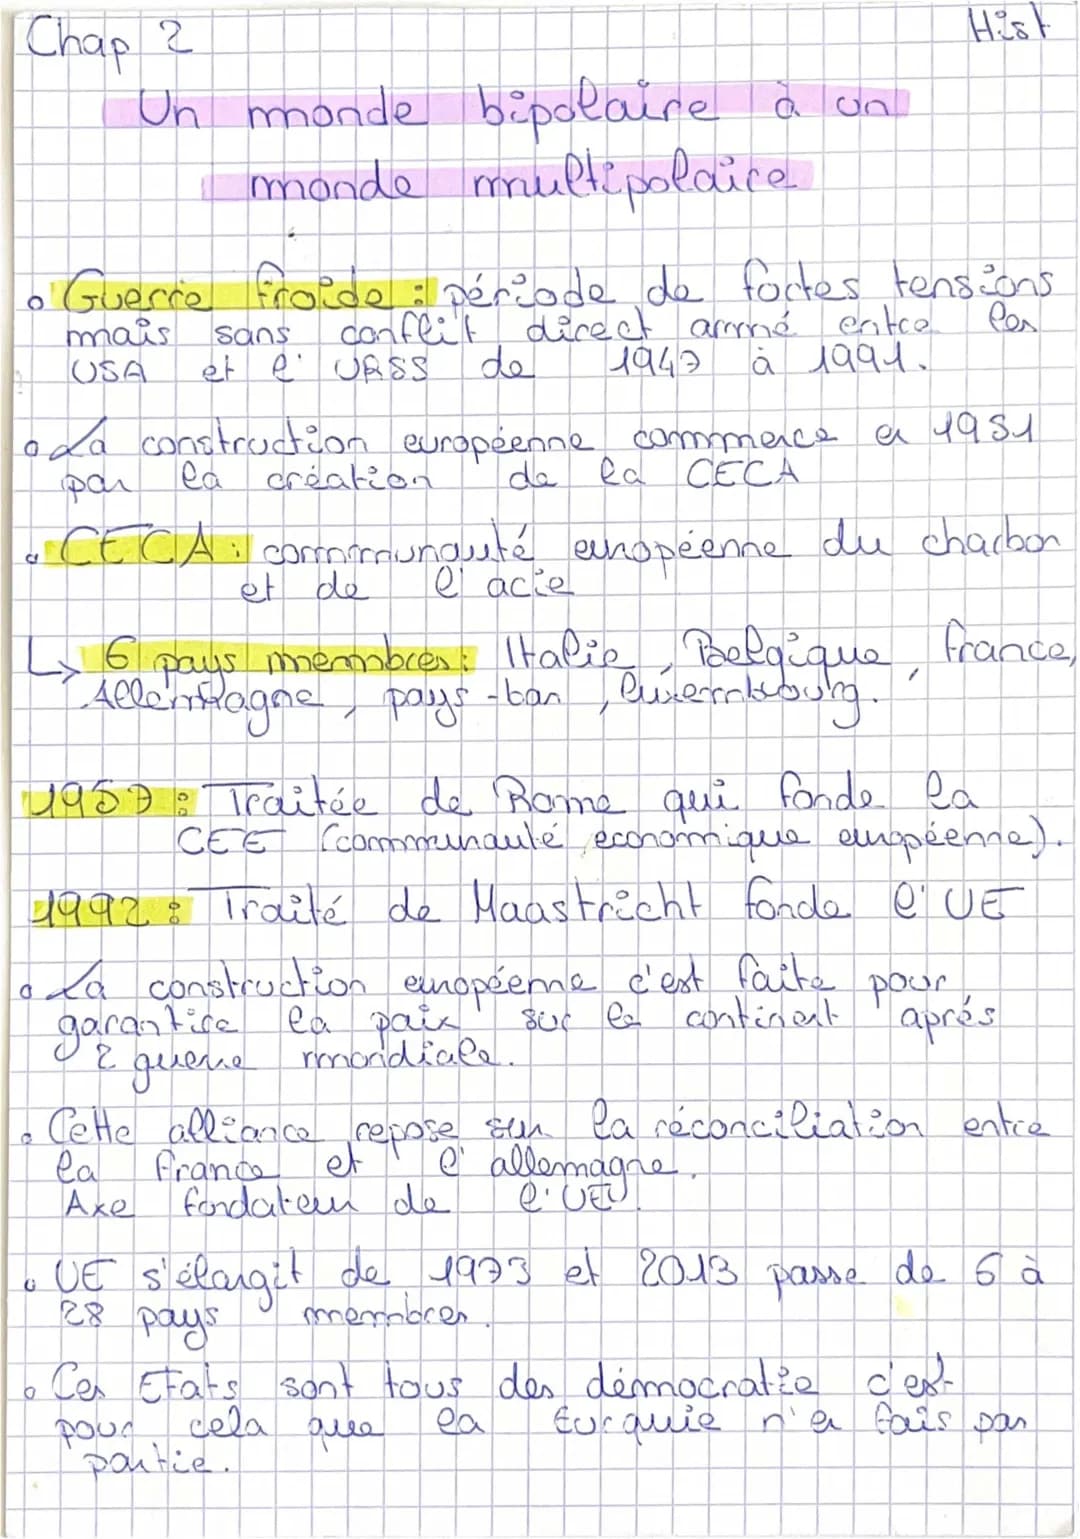 Chap 2
Hist
Un monde bipolaire à un
monde multipolaire
Guerre froide : période de fortes tensions
mais sans conflit direct armé entre les
USA et l'URSS de 1947 à 1991.
La construction européenne commence en 1951
par la création de la CECA
CECA : communauté européenne du charbon
et de l'acie
↳ 6 pays membres : Italie, Belgique, France,
Allemagne, pays-bas, Luxembourg.
1957 : Traitée de Rome qui fonde la
CEE (communauté economique européenne).
1992 : Traité de Maastricht fonde l'UE
La construction européenne c'est faite pour
garantire la paix sur le continent aprés
2 guerre mondiale.
Cette alliance repose sur la réconciliation entre
la France et l'allemagne.
Axe fondateur de l'UE.
UE s'élargit de 1973 et 2013 passe de 6 à
28 pays membres.
Ces Etats sont tous des démocratie c'est
pour cela que la turquie n'en fais pas
partie.